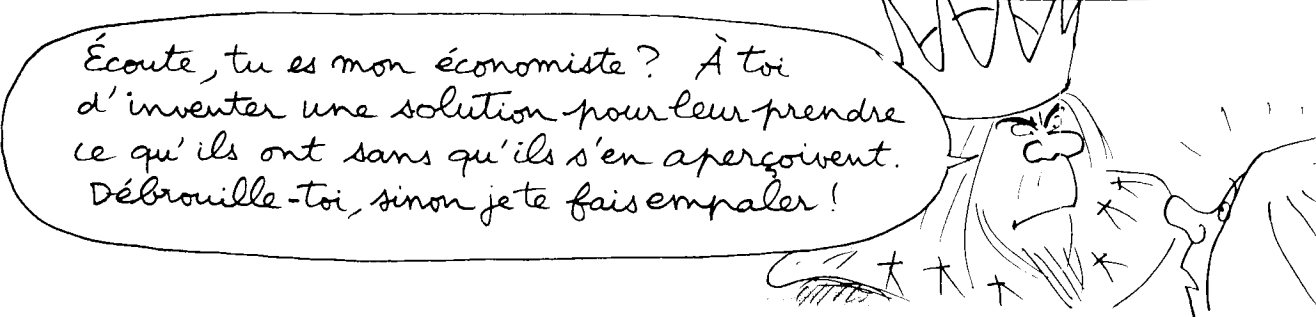 Écoute, tu es mon économiste? À toi
d'inventer une solution pour leur prendre
ce qu'ils ont sans qu'ils s'en aperçoivent.
Débrouille-toi, sinon je te fais empaler!